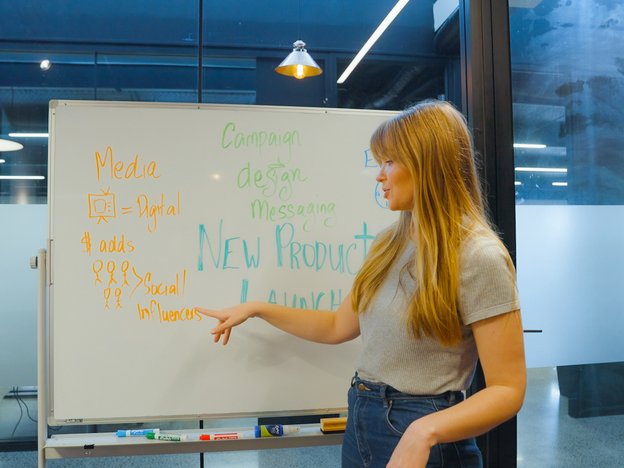 Media
= Digital
$ adds
> Social/
Influencers
Campaign
design
Messaging
NEW PRODUCT
LAUNCH